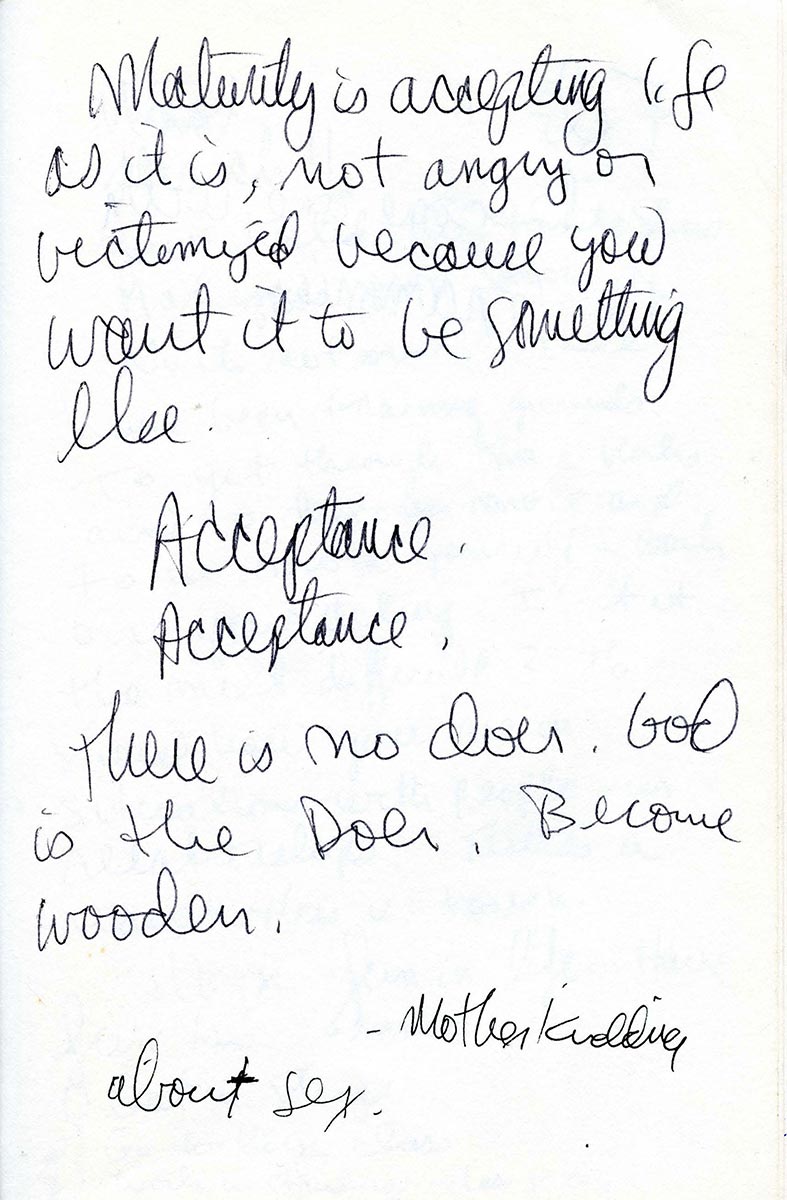 Maturity is accepting life
as it is, not angry or
victimized because you
want it to be something
else.
Acceptance.
Acceptance.
There is no doer. God
is the Doer. Become
wooden.
- Mother Kudding
about sex.